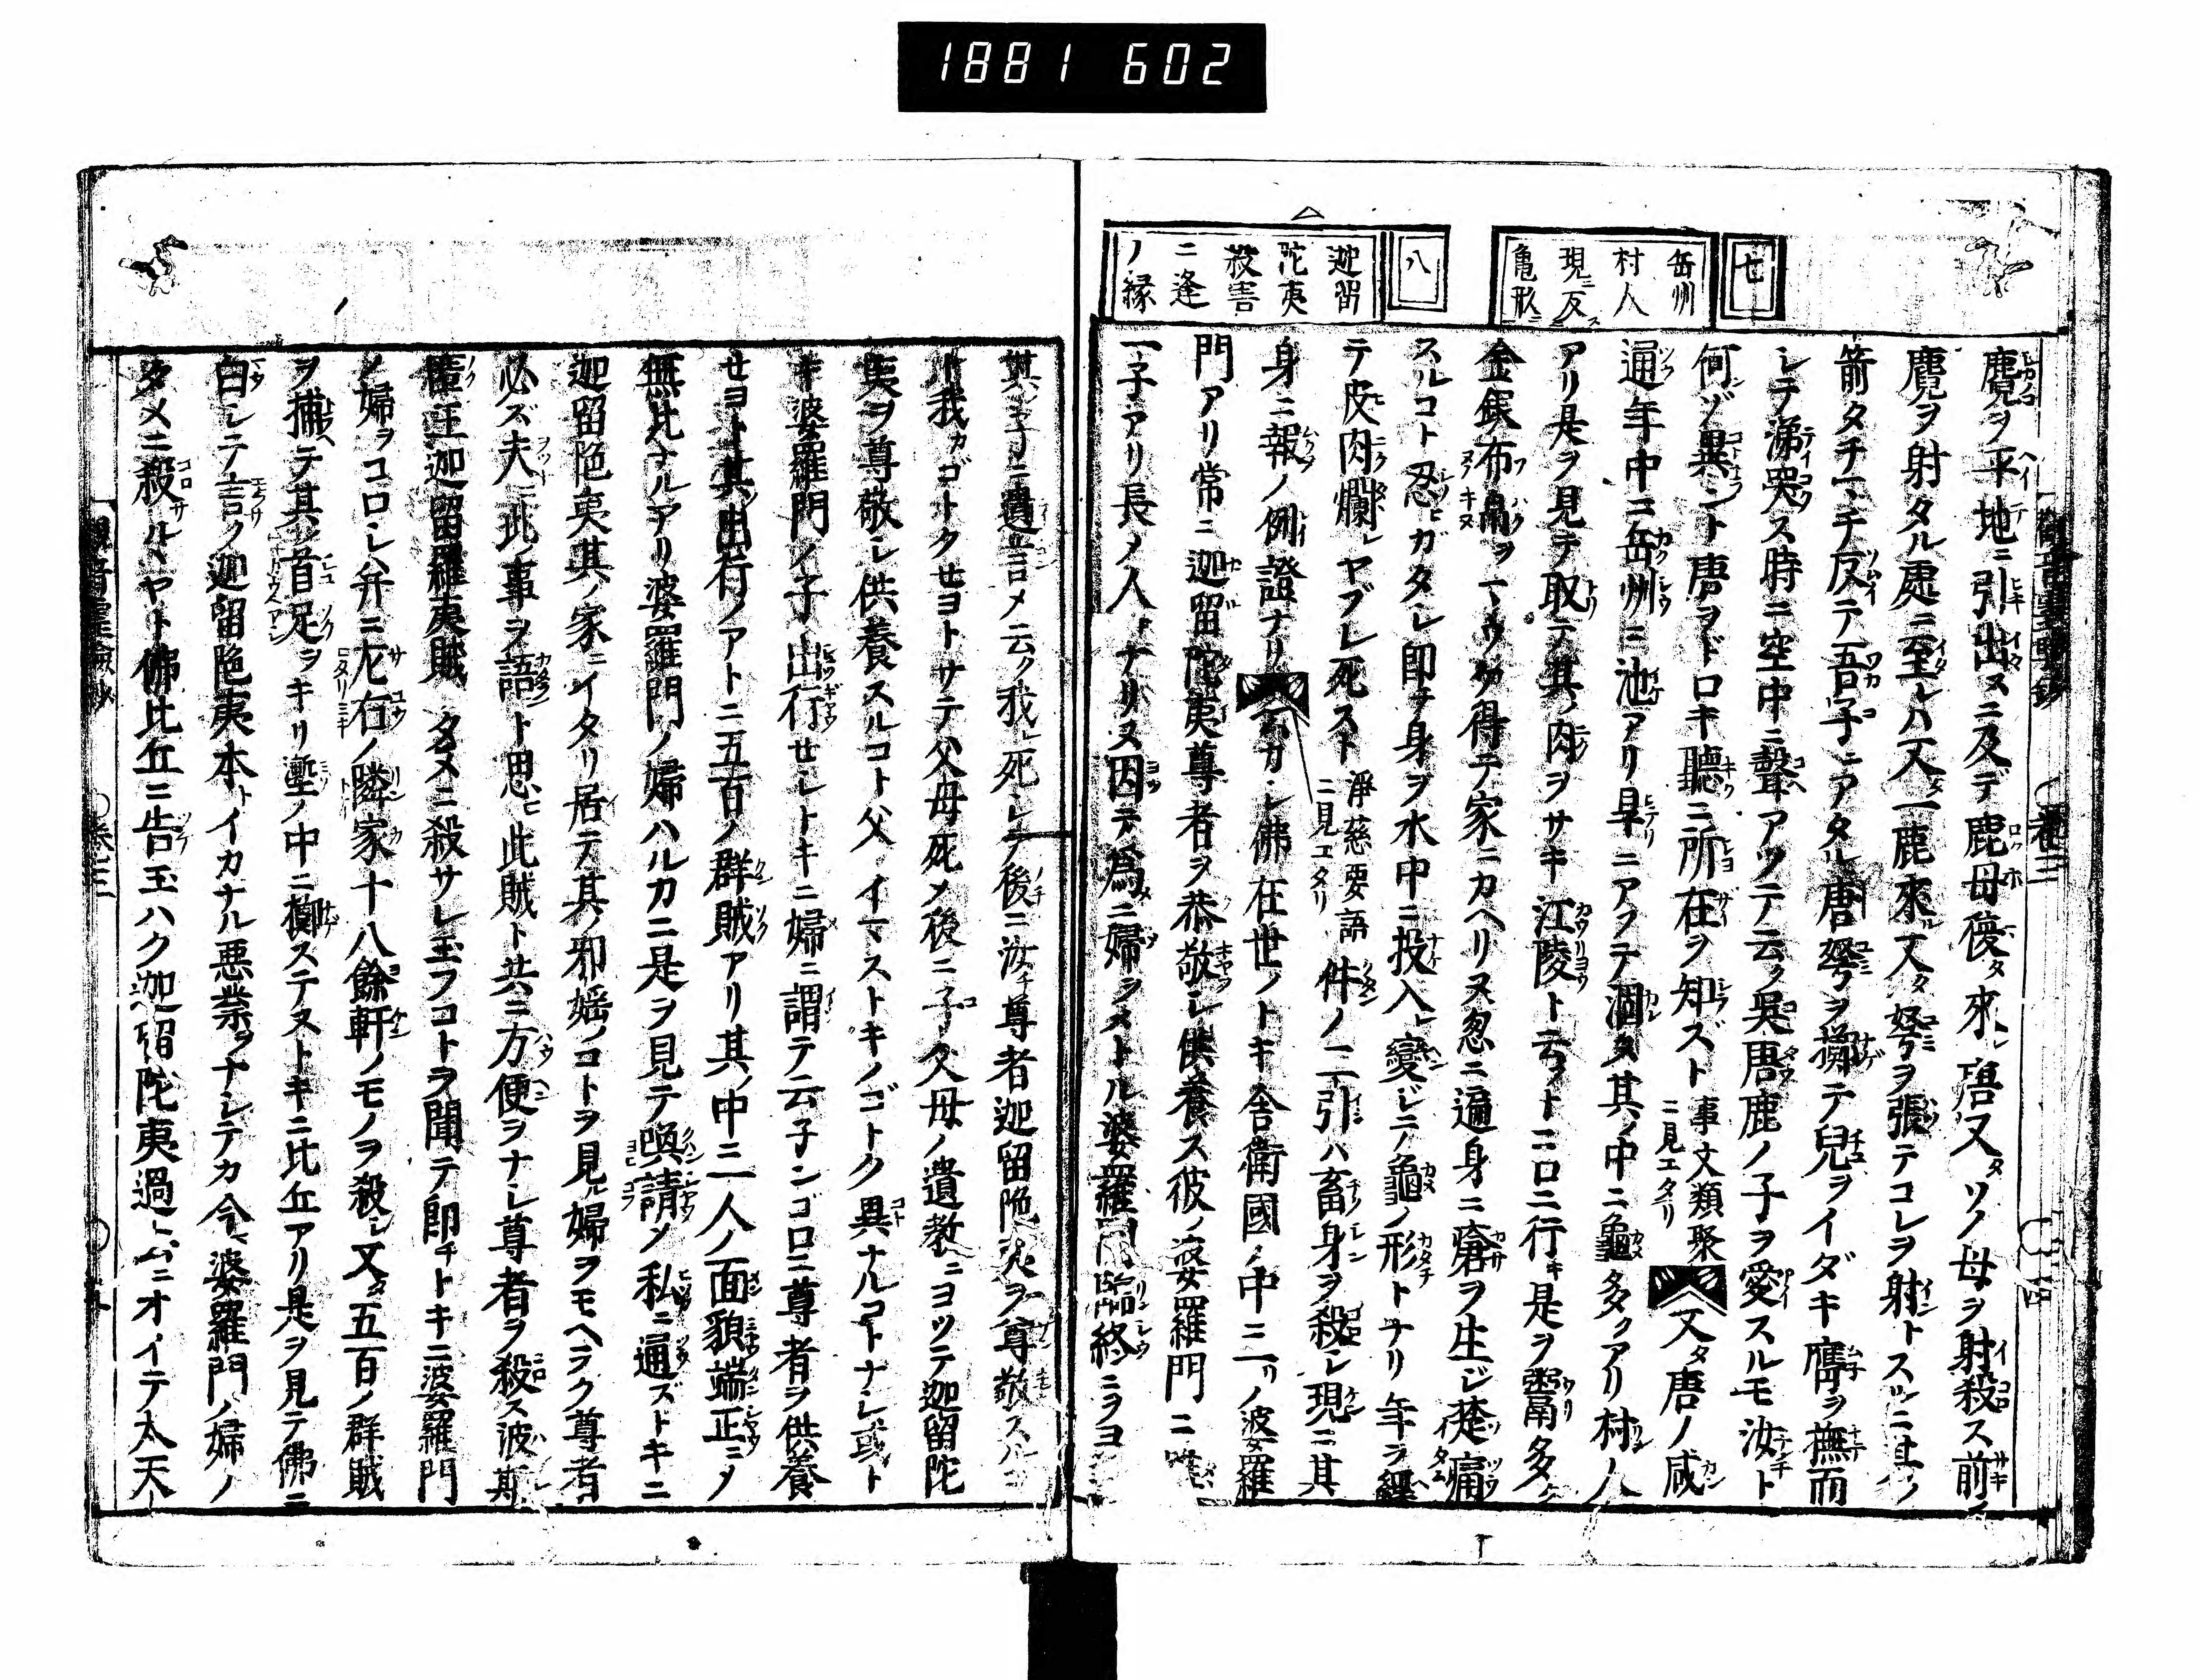 1881 602
七
岳州
村人
現ニ反ス
亀形ニ
八
迦留
陀夷
殺害
ニ逢
ノ縁
麑ヲ平地ニ引出スニ及デ鹿母復タ來ル唐又タソノ母ヲ射殺ス前ノ
麑ヲ射タル處ニ至レハ又タ一鹿來ル又タ弩ヲ張テコレヲ射ントスルニ其ノ
箭タチマチ反テ吾子ニアタル唐弩ヲ擲テ兒ヲイダキ膺ヲ撫而
シテ涕哭ス時ニ空中ニ聲アツテ云ク吳唐鹿ノ子ヲ愛スルモ汝ト
何ゾ異ント唐ヲドロキ聽ニ所在ヲ知ズト事文類聚ニ見エタリ又タ唐ノ咸
通年中ニ岳州ニ池アリ旱ニアフテ涸タ其ノ中ニ龜多クアリ村ノ人
アリ是ヲ見テ取テ其ノ肉ヲサキ江陵ト云フトコロニ行キ是ヲ鬻多ク
金銀布帛ヲマウケ得テ家ニカヘリヌ忽ニ遍身ニ瘡ヲ生ジ楚痛
スルコト忍ビガタシ即チ身ヲ水中ニ投入レ變ジテ龜ノ形トナリ年ヲ經
テ皮肉爛レヤブレ死スト淨慈要語ニ見エタリ件ノ二引ハ畜身ヲ殺シ現ニ其
身ニ報ノ例證ナリ ムカシ佛在世ノトキ舍衛國ノ中ニ一リノ波羅
門アリ常ニ迦留陀夷尊者ヲ恭敬シ供養ス彼ノ婆羅門ニ唯
一子アリ長ノ人トナリヌ因テ爲ニ婦ヲメトル婆羅門臨終ニヲヨ
其子ニ遺言メ云ク我レ死シテ後ニ汝チ尊者迦留陀夷ヲ尊敬スルコ
ト我ガゴトクセヨトサテ父母死メ後ニ子父母ノ遺教ニヨツテ迦留陀
夷ヲ尊敬シ供養スルコト父イマストキノゴトク異ナルコトナシ或ト
キ婆羅門ノ子出行セシトキニ婦ニ謂テ云子ンゴロニ尊者ヲ供養
セヨト其ノ出行ノアトニ五百ノ群賊アリ其ノ中ニ一人ノ面貌端正ニメ
無比ナルアリ婆羅門ノ婦ハルカニ是ヲ見テ喚請メ私ニ通ズトキニ
迦留陀夷其ノ家ニイタリ居テ其ノ邪婬ノコトヲ見ル婦ヲモヘラク尊者
必ズ夫ニ此ノ事ヲ語ント思ヒ此賊ト共ニ方便ヲナシ尊者ヲ殺ス波斯
匿王迦留羅夷賊ノタメニ殺サレ玉フコトヲ聞テ即チトキニ波羅門
ノ婦ヲコロシ并ニ左右ノ隣家十八餘軒ノモノヲ殺シ又タ五百ノ群賊
ヲ捕ヘテ其ノ首足ヲキリ壍ノ中ニ擲ステヌトキニ比丘アリ是ヲ見テ佛ニ
白シテ言サク迦留陀夷本トイカナル悪業ヲナシテカ今マ婆羅門ノ婦ノ
タメニ殺サルヽヤト佛比丘ニ告玉ハク迦留陀夷過ムニオイテ大天